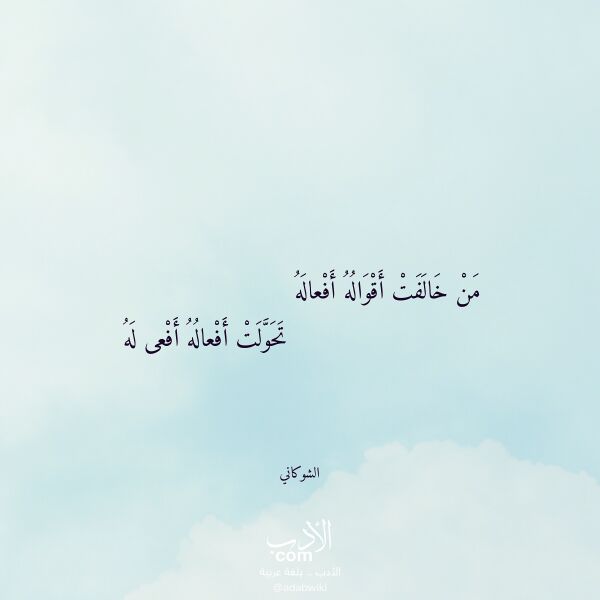 مَنْ خَالَفَتْ أَقْوَالُهُ أَفْعالَهُ
تَحَوَّلَتْ أَفْعالُهُ أَفْعى لَهُ
الشوكاني
الأدب
com
الأدب .. بلغة عربية
@adabwiki